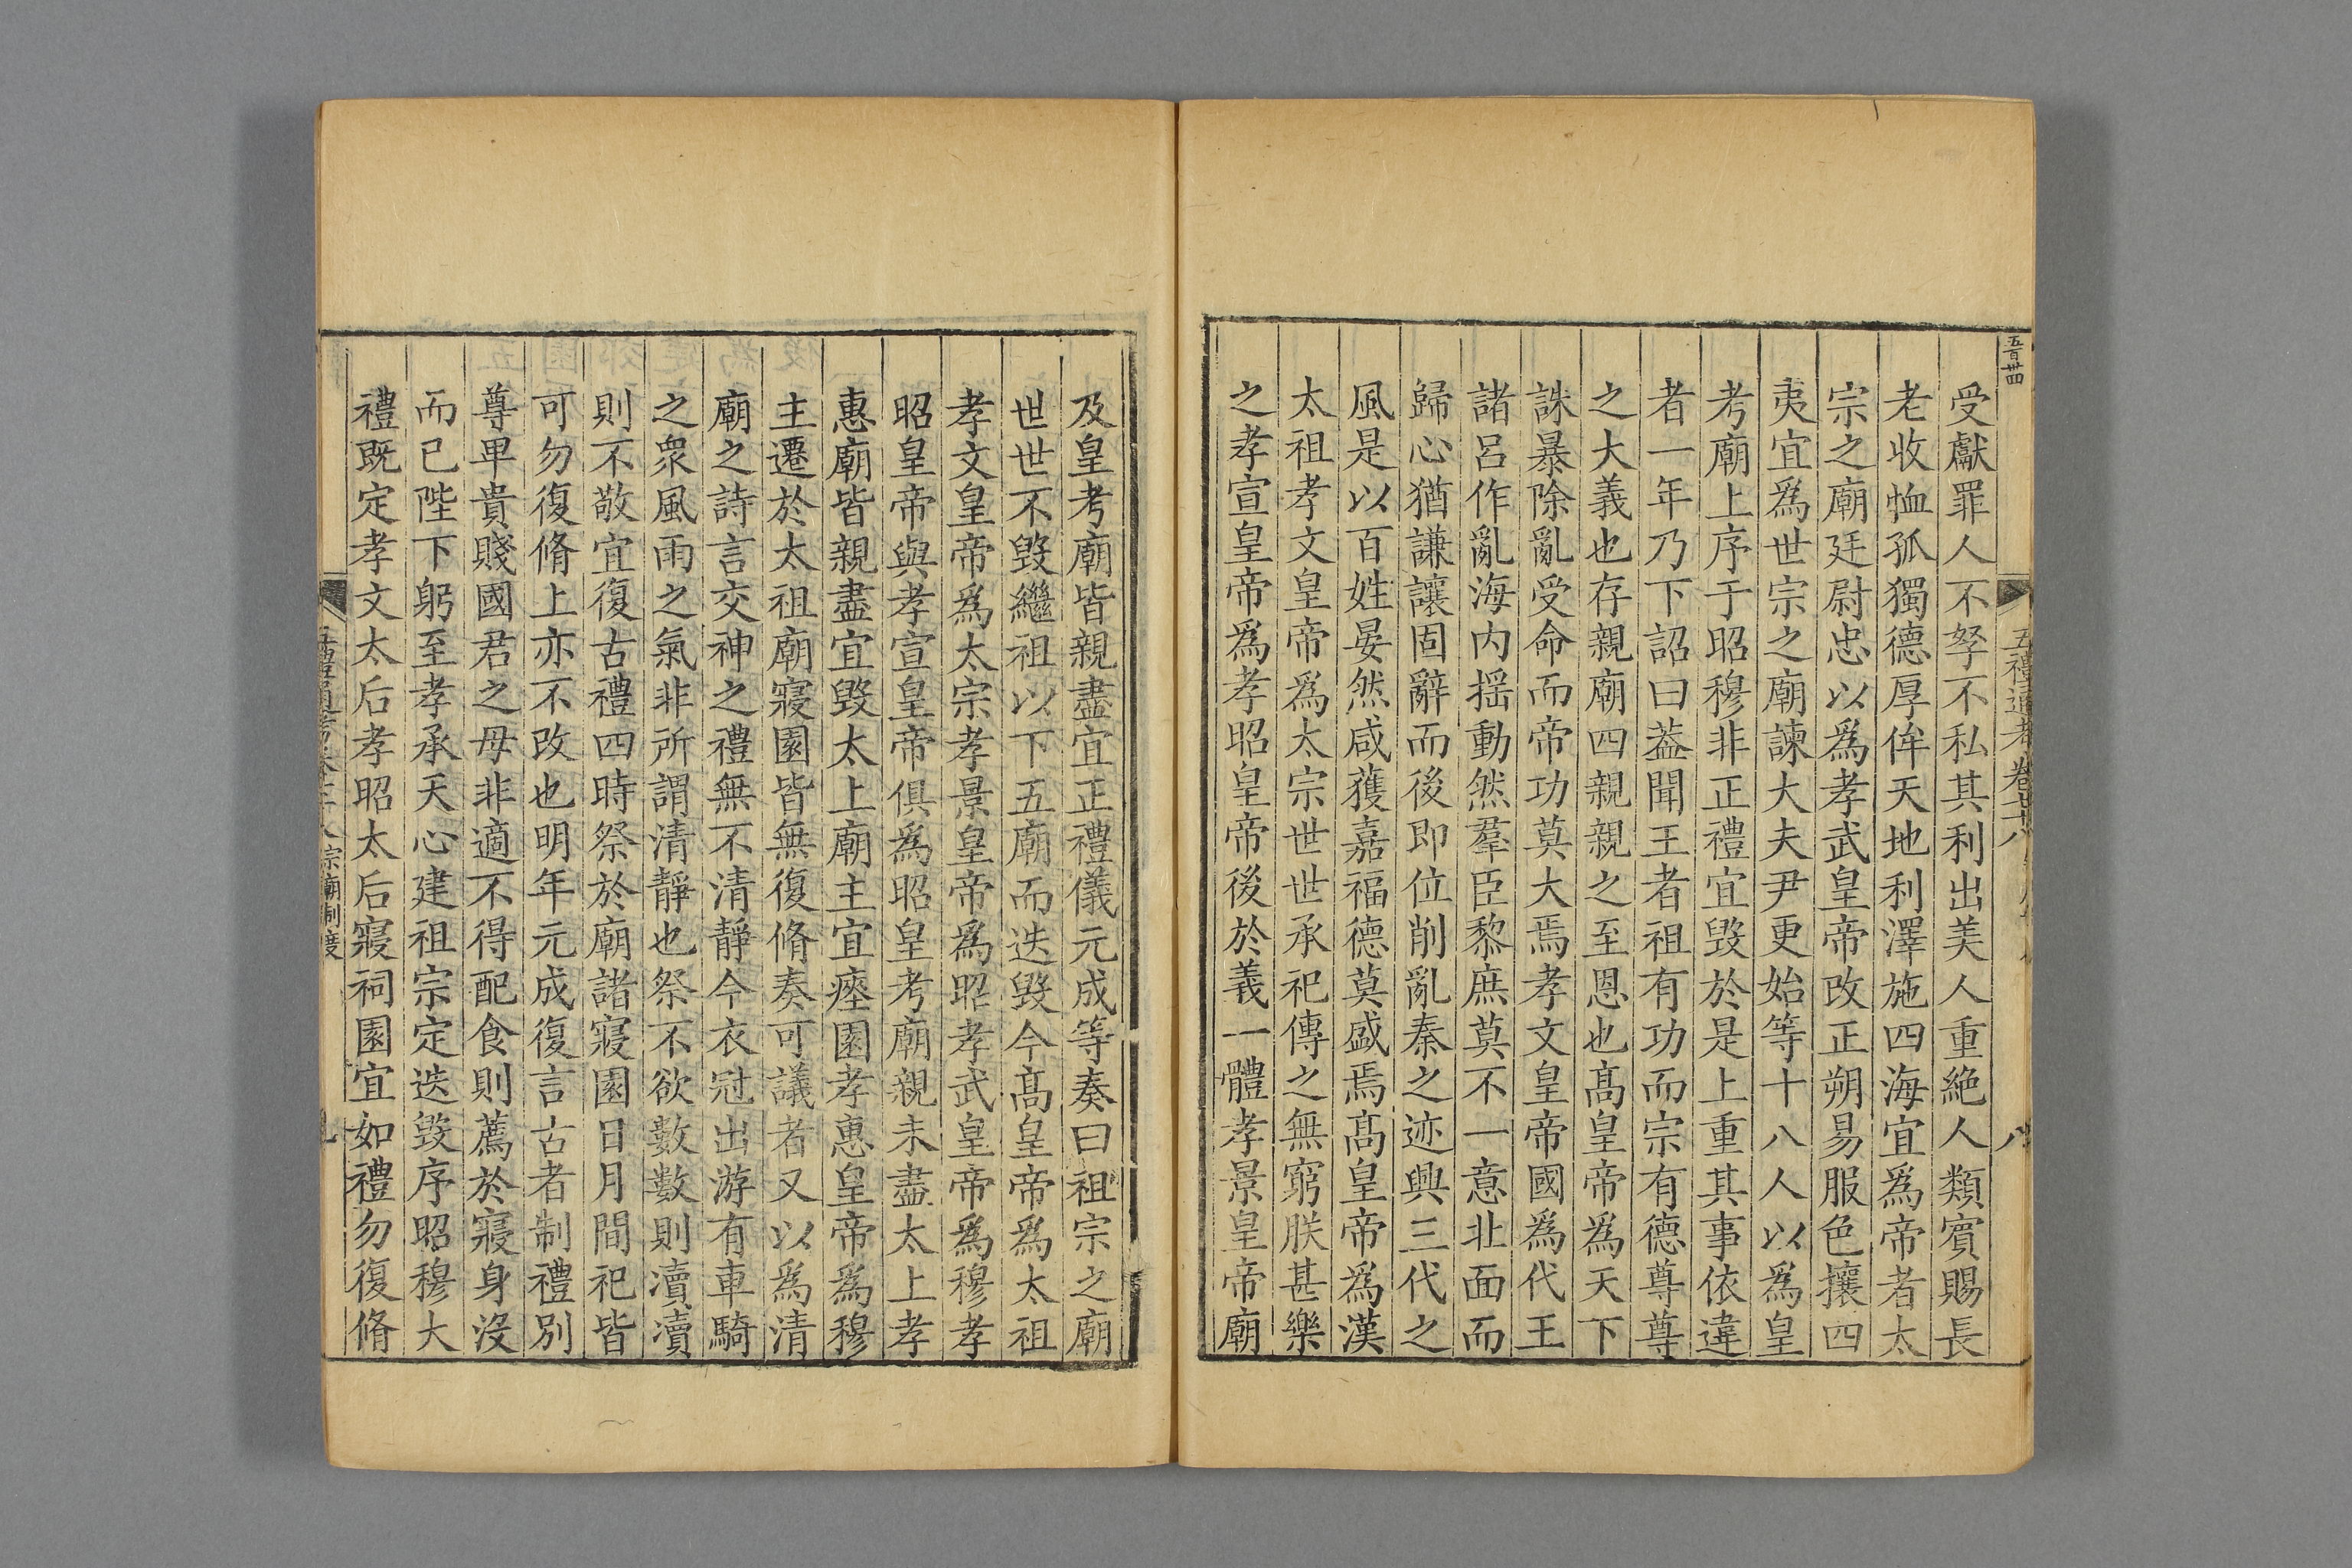 五百卅四
五禮通考 卷 八
受獻罪人不孥不私其利出美人重絶人類賓賜長
老收恤孤獨德厚侔天地利澤施四海宜爲帝者太
宗之廟廷尉忠以爲孝武皇帝改正朔易服色攘四
夷宜爲世宗之廟諫大夫尹更始等十八人以爲皇
考廟上序于昭穆非正禮宜毀於是上重其事依違
者一年乃下詔曰葢聞王者祖有功而宗有德尊尊
之大義也存親廟四親親之至恩也髙皇帝爲天下
誅暴除亂受命而帝功莫大焉孝文皇帝國爲代王
諸呂作亂海内揺動然羣臣黎庶莫不一意北面而
歸心猶謙讓固辭而後即位削亂秦之迹興三代之
風是以百姓晏然咸獲嘉福德莫盛焉髙皇帝爲漢
太祖孝文皇帝爲太宗世世承祀傳之無窮朕甚樂
之孝宣皇帝爲孝昭皇帝後於義一體孝景皇帝廟
及皇考廟皆親盡宜正禮儀元成等奏曰祖宗之廟
世世不毀繼祖以下五廟而迭毀今髙皇帝爲太祖
孝文皇帝爲太宗孝景皇帝爲昭孝武皇帝爲穆孝
昭皇帝與孝宣皇帝俱爲昭皇考廟親未盡太上孝
惠廟皆親盡宜毀太上廟主宜瘞園孝惠皇帝爲穆
主遷於太祖廟寢園皆無復脩奏可議者又以爲清
廟之詩言交神之禮無不清靜今衣冠出游有車騎
之衆風雨之氣非所謂清靜也祭不欲數數則瀆瀆
則不敬宜復古禮四時祭於廟諸寢園日月間祀皆
可勿復脩上亦不改也明年元成復言古者制禮别
尊卑貴賤國君之母非適不得配食則薦於寢身没
而已陛下躬至孝承天心建祖宗定迭毀序昭穆大
禮既定孝文太后孝昭太后寢祠園宜如禮勿復脩
宗廟制度 九